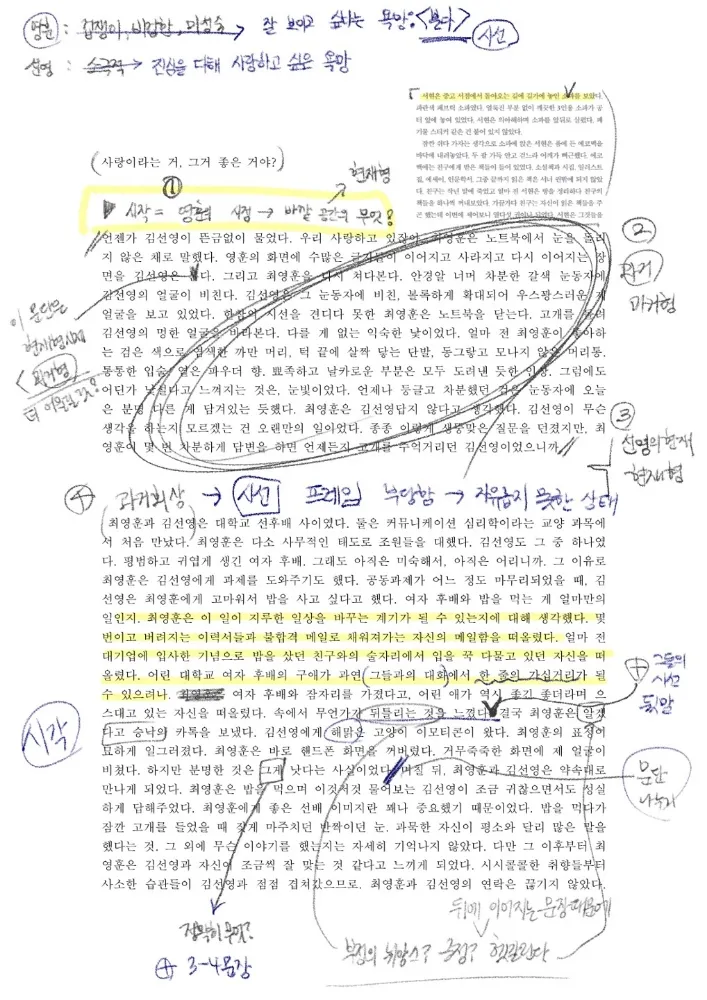 영훈 : 겁쟁이, 비겁함, 미성숙 → 잘 보이고 싶하는 욕망 <본다> 시선
선영 : 소극적 → 진심을 다해 사랑하고 싶은 욕망
서현은 중고 서점에서 돌아오는 길에 길가에 놓인 소파를 보았다.
파란색 패브릭 소파였다. 얼룩진 부분 없이 깨끗한 3인용 소파가 공
터 앞에 놓여 있었다. 서현은 의아해하며 소파를 앞뒤로 살폈다. 폐
기물 스티커 같은 건 붙어 있지 않았다.
잠깐 쉬다 가자는 생각으로 소파에 앉은 서현은
바닥에 내려놓았다. 두 팔 가득 안고 걷느라 어깨가 뻐근했다. 에코
백에는 친구에게 받은 책들이 들어 있었다. 소설책과 시집, 일러스트
집, 에세이, 인문학서. 그중 끝까지 읽은 책은 서너 권밖에 되지 않았
다. 친구는 작년 말에 죽었고
(사랑이라는 거, 그거 좋은 거야?)
현재형
①
▶ 시작 = 영훈의 시점 → 바깥 공간의 무엇?
언젠가 김선영이 뜬금없이 물었다. 우리 사랑하고 있잖아. 최영훈은 노트북에서 눈을 돌리
지 않은 채로 말했다. 영훈의 화면에 수많은 글자들이 이어지고 사라지고 다시 이어지는 장
면을 김선영은 본다. 그리고 최영훈을 다시 쳐다본다. 안경알 너머 차분한 갈색 눈동자에
김선영의 얼굴이 비친다. 김선영은 그 눈동자에 비친, 볼록하게 확대되어 우스꽝스러운 제
얼굴을 보고 있었다. 한참의 시선을 견디다 못한 최영훈은 노트북을 닫는다. 고개를 돌려
김선영의 멍한 얼굴을 바라본다. 다를 게 없는 익숙한 낯이었다. 얼마 전 최영훈이 좋아하
는 검은 색으로 염색한 까만 머리, 턱 끝에 살짝 닿는 단발, 동그랗고 모나지 않은 머리통.
통통한 입술, 옅은 파우더 향. 뾰족하고 날카로운 부분은 모두 도려낸 듯한 인상. 그럼에도
어딘가 낯설다고 느껴지는 것은, 눈빛이었다. 언제나 둥글고 차분했던 검은 눈동자에 오늘
은 분명 다른 게 담겨있는 듯했다. 최영훈은 김선영답지 않다고 생각했다. 김선영이 무슨
생각을 하는지 모르겠는 건 오랜만의 일이었다. 종종 이렇게 생뚱맞은 질문을 던졌지만, 최
영훈이 몇 번 차분하게 답변을 하면 언제든지 고개를 주억거리던 김선영이었으니까.
②
과거
과거형
이 문단은
현재형
과거형
③
선영의 현재
현재형
④ 과거회상 → 시선 프레임 부당함 → 자유롭지 못한 상태
최영훈과 김선영은 대학교 선후배 사이였다. 둘은 커뮤니케이션 심리학이라는 교양 과목에
서 처음 만났다. 최영훈은 다소 사무적인 태도로 조원들을 대했다. 김선영도 그 중 하나였
다. 평범하고 귀엽게 생긴 여자 후배. 그래도 아직은 미숙해서, 아직은 어리니까. 그 이유로
최영훈은 김선영에게 과제를 도와주기도 했다. 공동과제가 어느 정도 마무리되었을 때, 김
선영은 최영훈에게 고마워서 밥을 사고 싶다고 했다. 여자 후배와 밥을 먹는 게 얼마만의
일인지. 최영훈은 이 일이 지루한 일상을 바꾸는 계기가 될 수 있는지에 대해 생각했다. 몇
번이고 버려지는 이력서들과 불합격 메일로 채워져가는 자신의 메일함을 떠올렸다. 얼마 전
대기업에 입사한 기념으로 밥을 샀던 친구와의 술자리에서 입을 꾹 다물고 있던 자신을 떠
올렸다. 어린 대학교 여자 후배의 구애가 과연 (그들과의 대화에서 한 줄의 가십거리가 될
수 있으려나. 여자 후배와 잠자리를 가졌다고, 어린 애가 역시 좋긴 좋더라며 으
스대고 있는 자신을 떠올렸다. 속에서 무언가가 뒤틀리는 것을 느꼈다. 결국 최영훈은 알겠
다고 승낙의 카톡을 보냈다. 김선영에게 해맑은 고양이 이모티콘이 왔다. 최영훈의 표정이
묘하게 일그러졌다. 최영훈은 바로 핸드폰 화면을 꺼버렸다. 거무죽죽한 화면에 제 얼굴이
비쳤다. 하지만 분명한 것은 그게 낫다는 사실이었다. 며칠 뒤, 최영훈과 김선영은 약속대로
만나게 되었다. 최영훈은 밥을 먹으며 이것저것 물어보는 김선영이 조금 귀찮으면서도 성실
하게 답해주었다. 최영훈에게 좋은 선배 이미지란 꽤나 중요했기 때문이었다. 밥을 먹다가
잠깐 고개를 들었을 때 잦게 마주치던 반짝이던 눈. 과묵한 자신이 평소와 달리 많은 말을
했다는 것. 그 외에 무슨 이야기를 했는지는 자세히 기억나지 않았다. 다만 그 이후부터 최
영훈은 김선영과 자신이 조금씩 잘 맞는 것 같다고 느끼게 되었다. 시시콜콜한 취향들부터
사소한 습관들이 김선영과 점점 겹쳐갔으므로. 최영훈과 김선영의 연락은 끊기지 않았다.
⊕ 그들의
시선
시각
문단
나누기
뒤에 이어지는 문장 때문에
정확히 무엇?
⊕ 3-4문장
부정의 뉘앙스? 긍정? 헷갈린다